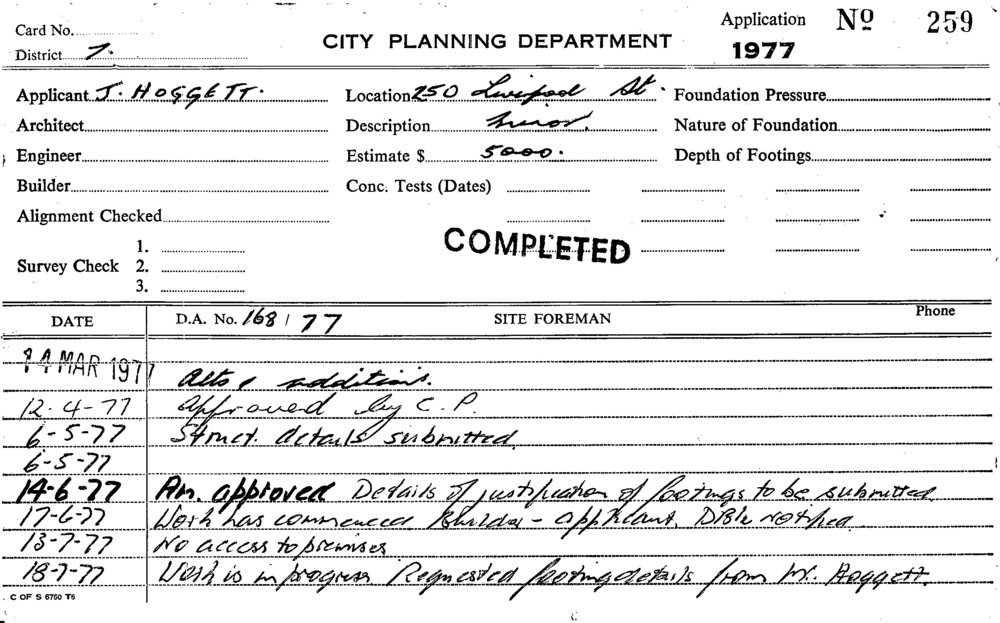 Card No.
District 7.
CITY PLANNING DEPARTMENT
Application Nº 259
1977
Applicant J. HOGGETT.
Location 250 Liverpool St.
Foundation Pressure
Architect
Description Minor.
Nature of Foundation
Engineer
Estimate $ 5000.
Depth of Footings
Builder
Conc. Tests (Dates)
Alignment Checked
COMPLETED
Survey Check 1.
2.
3.
DATE D.A. No. 168 / 77 SITE FOREMAN Phone
14 MAR 1977 Alts & additions.
12.4-77 Approved by C.P.
6-5-77 Struct. details submitted
6-5-77
14-6-77 Am. approved Details of justification of footings to be submitted
17-6-77 Work has commenced Builder - applicant. notified
13-7-77 No access to premises
18-7-77 Work is in progress Requested footing details from Mr. Hoggett.
C OF S 6760 T6